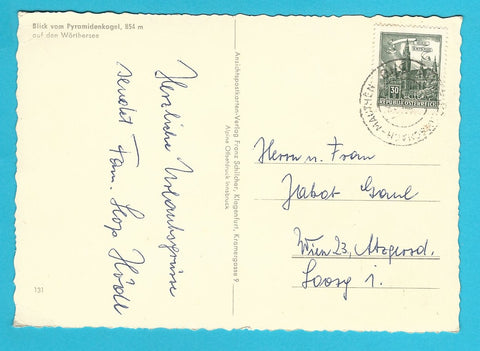 Blick vom Pyramidenkogel, 854 m
auf den Wörthersee
Herzliche Urlaubsgrüsse
sendet Fam.
131
Ansichtspostkarten-Verlag Franz Schilcher, Klagenfurt, Kramergasse 9
Alpine Offsetdruck Innsbruck
30
REPUBLIK ÖSTERREICH
Herrn u. Frau
Wien 23, Atzgersd.